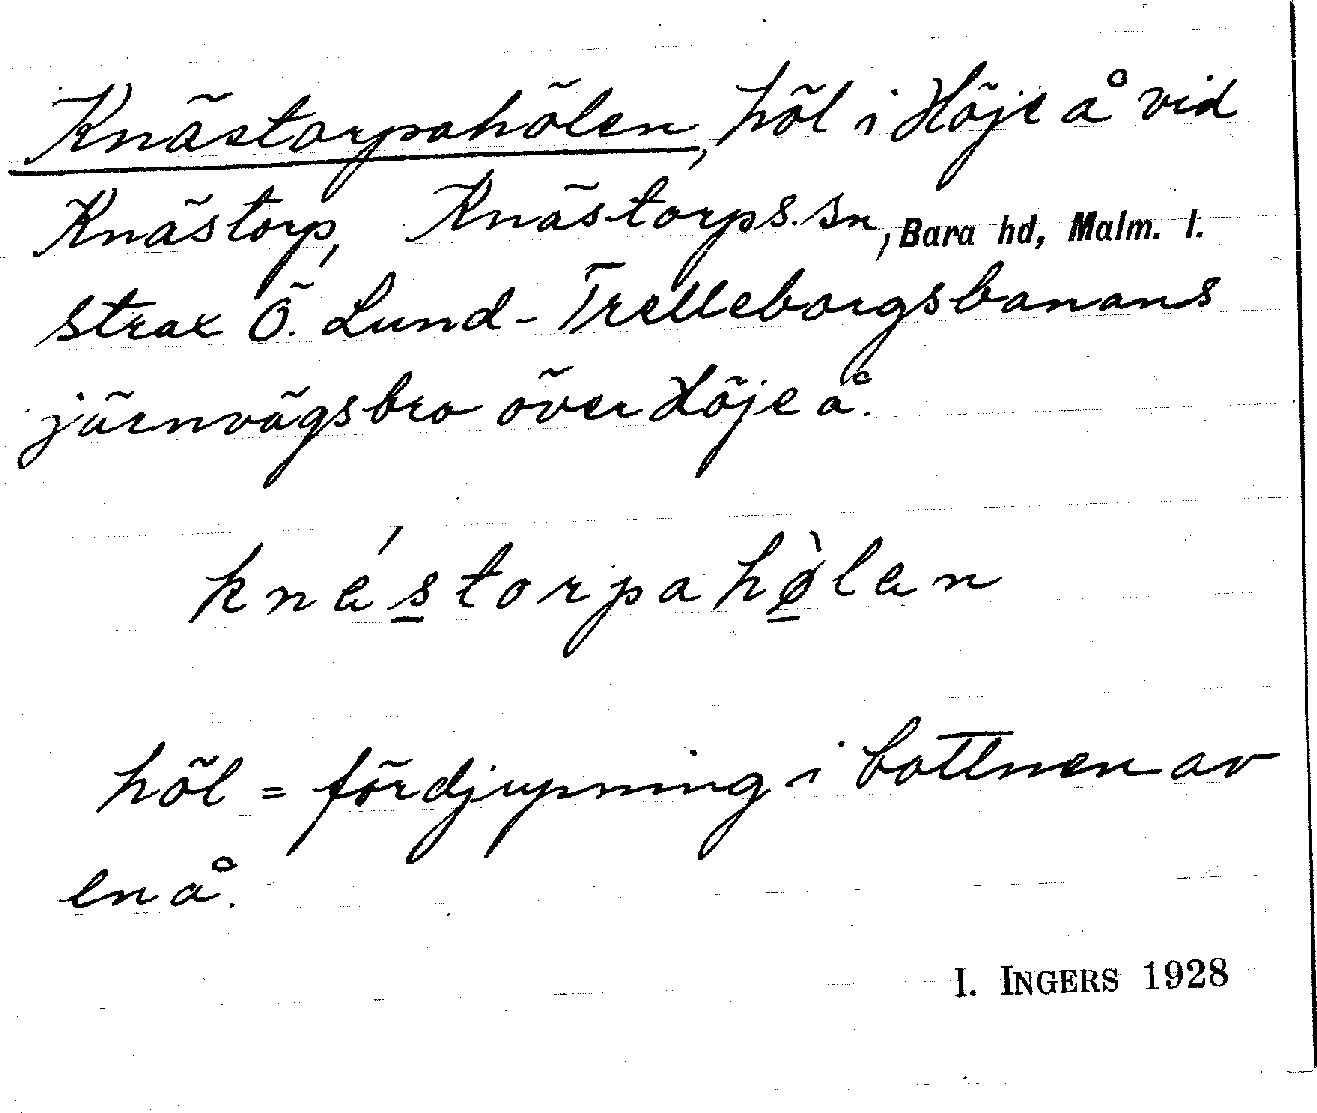 Knästorpahölen, höl i Höje å vid
Knästorp, Knästorps sn, Bara hd, Malm. l.
strax Ö. Lund-Trelleborgsbanans
järnvägsbro över Höje å.
knéstorpahø̀lan
höl = fördjupning i bottnen av
en å.
I. INGERS 1928